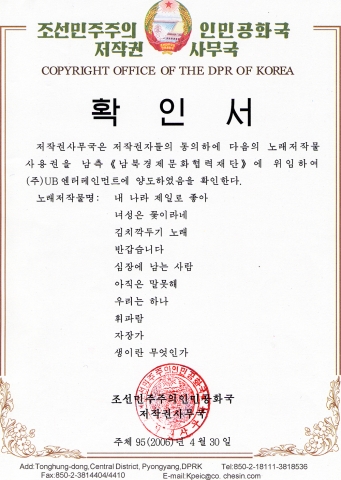 조선민주주의 인민공화국
저작권 사무국
COPYRIGHT OFFICE OF THE DPR OF KOREA
확 인 서
저작권사무국은 저작권자들의 동의하에 다음의 노래저작물
사용권을 남측 《남북경제문화협력재단》에 위임하여
(주)UB엔터테인먼트에 양도하였음을 확인한다.
노래저작물명: 내 나라 제일로 좋아
녀성은 꽃이라네
김치깍두기 노래
반갑습니다
심장에 남는 사람
아직은 말못해
우리는 하나
휘파람
자장가
생이란 무엇인가
조선민주주의인민공화국
저작권사무국
주체 95(2006)년 4월 30일
Add:Tonghung-dong,Central District, Pyongyang,DPRK Tel:850-2-18111-3818536
Fax:850-2-3814404/4410 E-mail:Kpeic@co. chesin.com